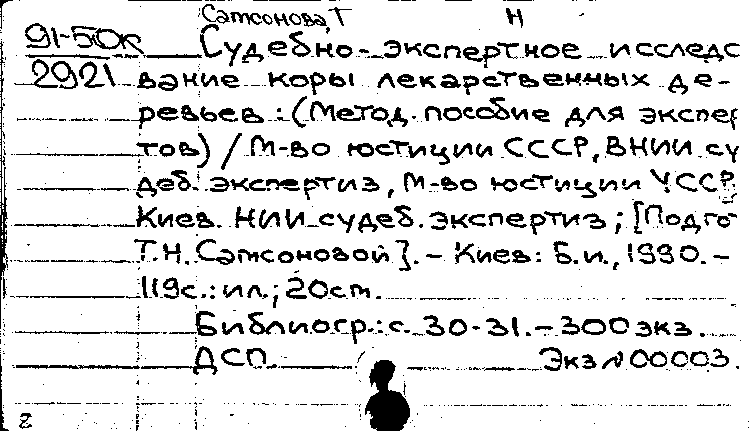 Самсонова, Т Н
91-50к Судебно-экспертное исследо
2921 вание коры лекарственных де-
ревьев : (Метод. пособие для экспер
тов) / М-во юстиции СССР, ВНИИ су
деб. экспертиз, М-во юстиции УССР,
Киев. НИИ судеб. экспертиз ; [Подго
Т.Н. Самсоновой]. – Киев : Б.и., 1990. –
119с. : ил. ; 20см.
Библиогр.: с. 30-31. – 300 экз.
ДСП. Экз № 00003.
2